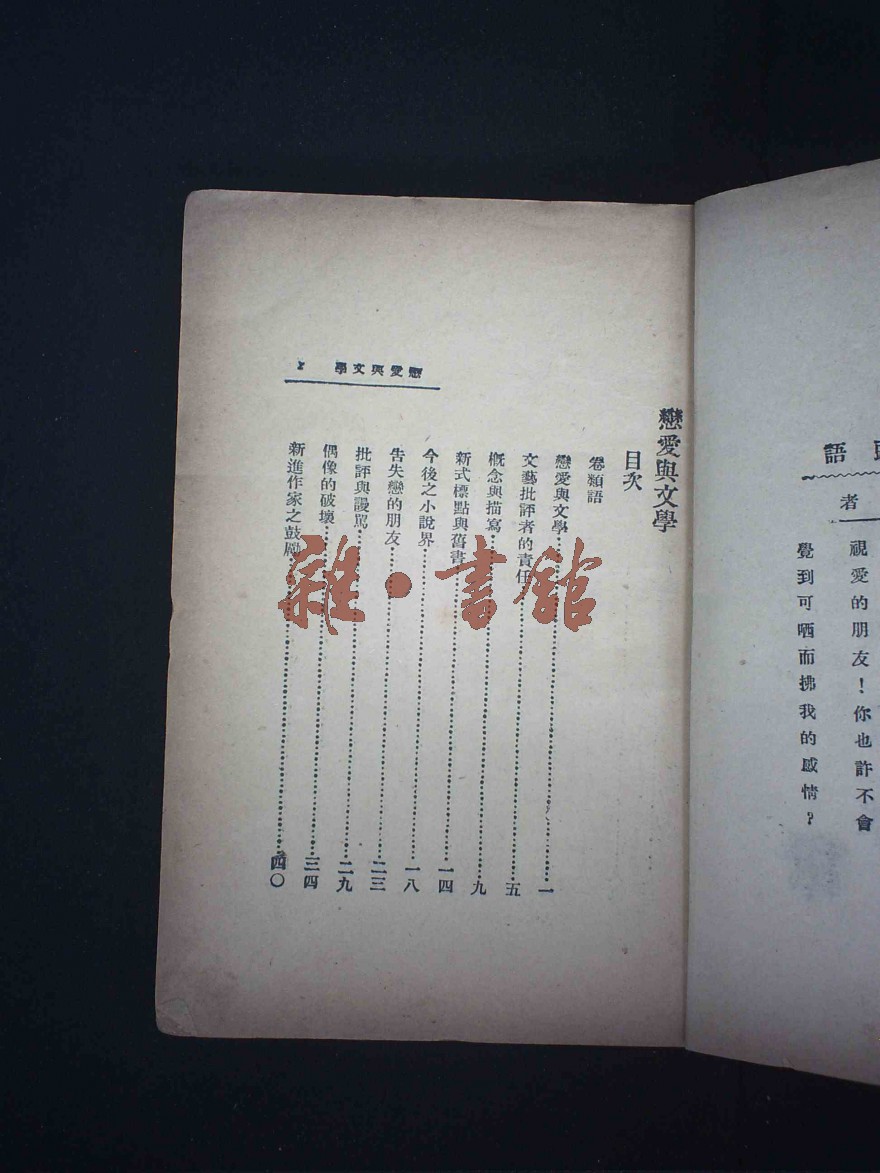 語
者
視愛的朋友！你也許不會
覺到可哂而拂我的感情？
戀愛與文學
目次
卷頭語
戀愛與文學…一
文藝批評者的責任…五
概念與描寫…九
新式標點與舊書…一四
今後之小說界…一八
告失戀的朋友…二三
批評與謾罵…二九
偶像的破壞…三四
新進作家之鼓勵…四〇
戀愛與文學
雜·書館